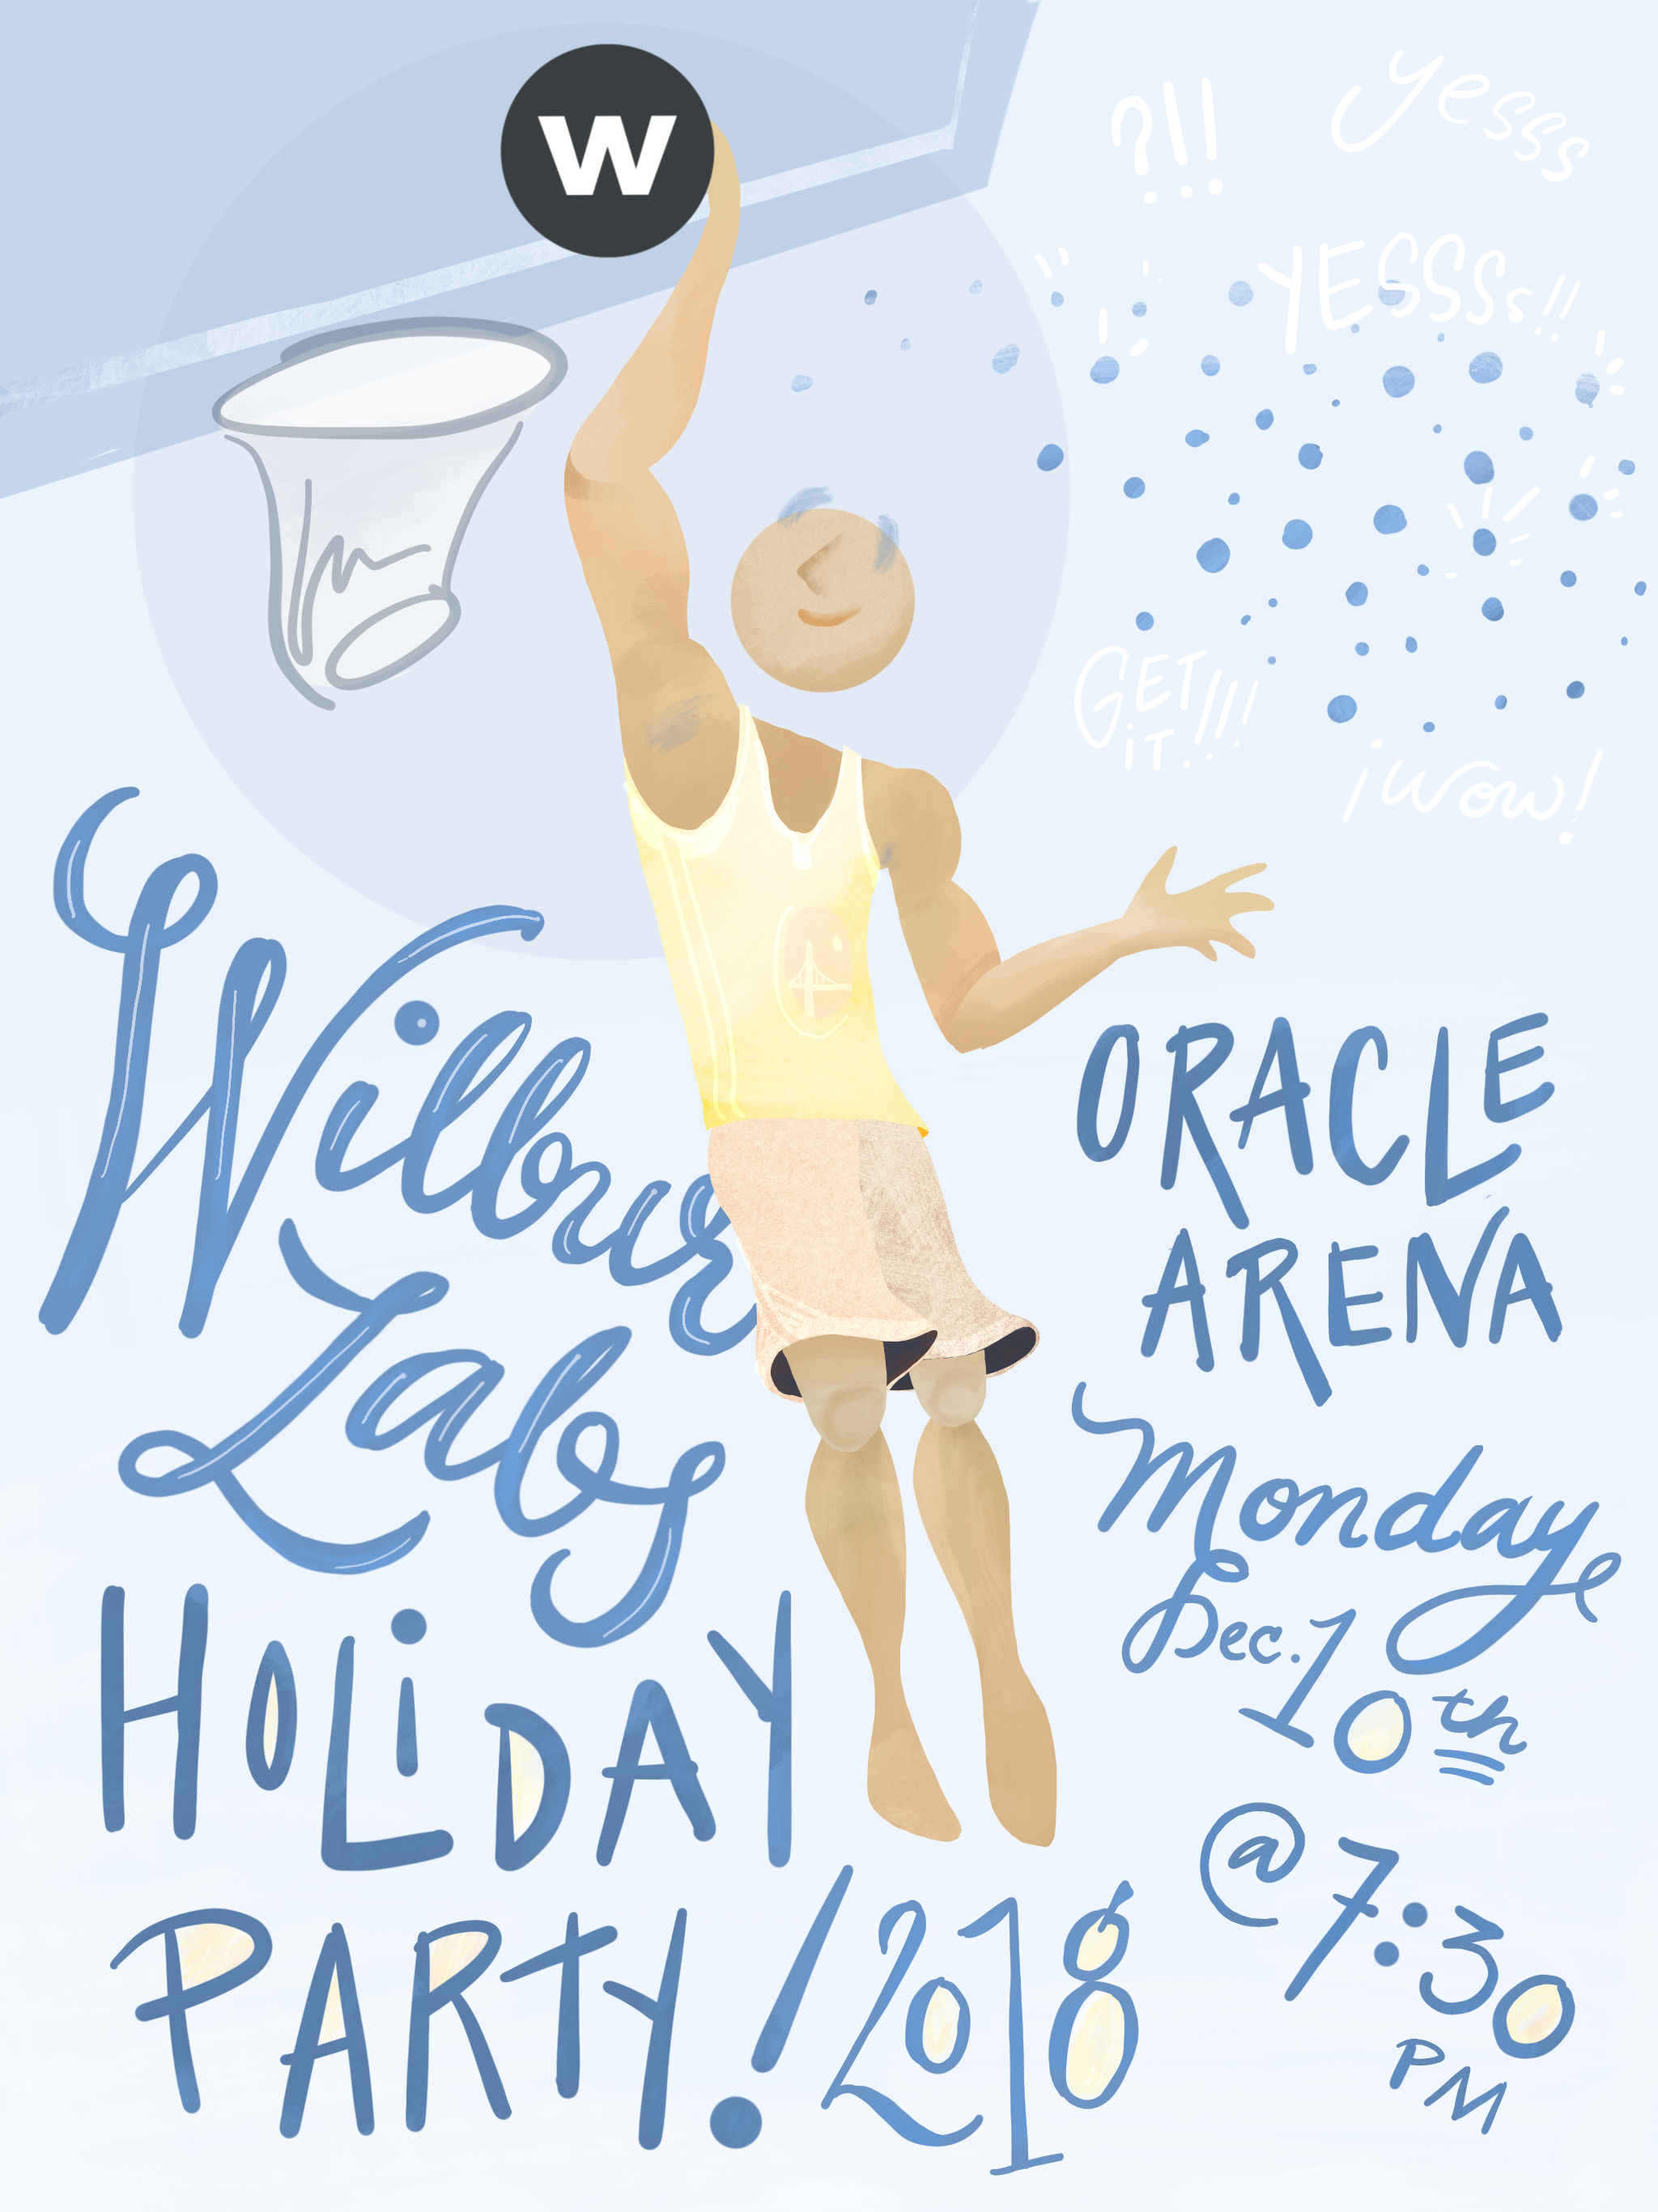 W
?!!
yesss
YESSSs!!
GET
iT!!!
¡Wow!
Wilbur
Labs
HOLiDAY
PARTY! 2018
ORACLE
ARENA
Monday
Dec. 10th
@ 7:30
PM